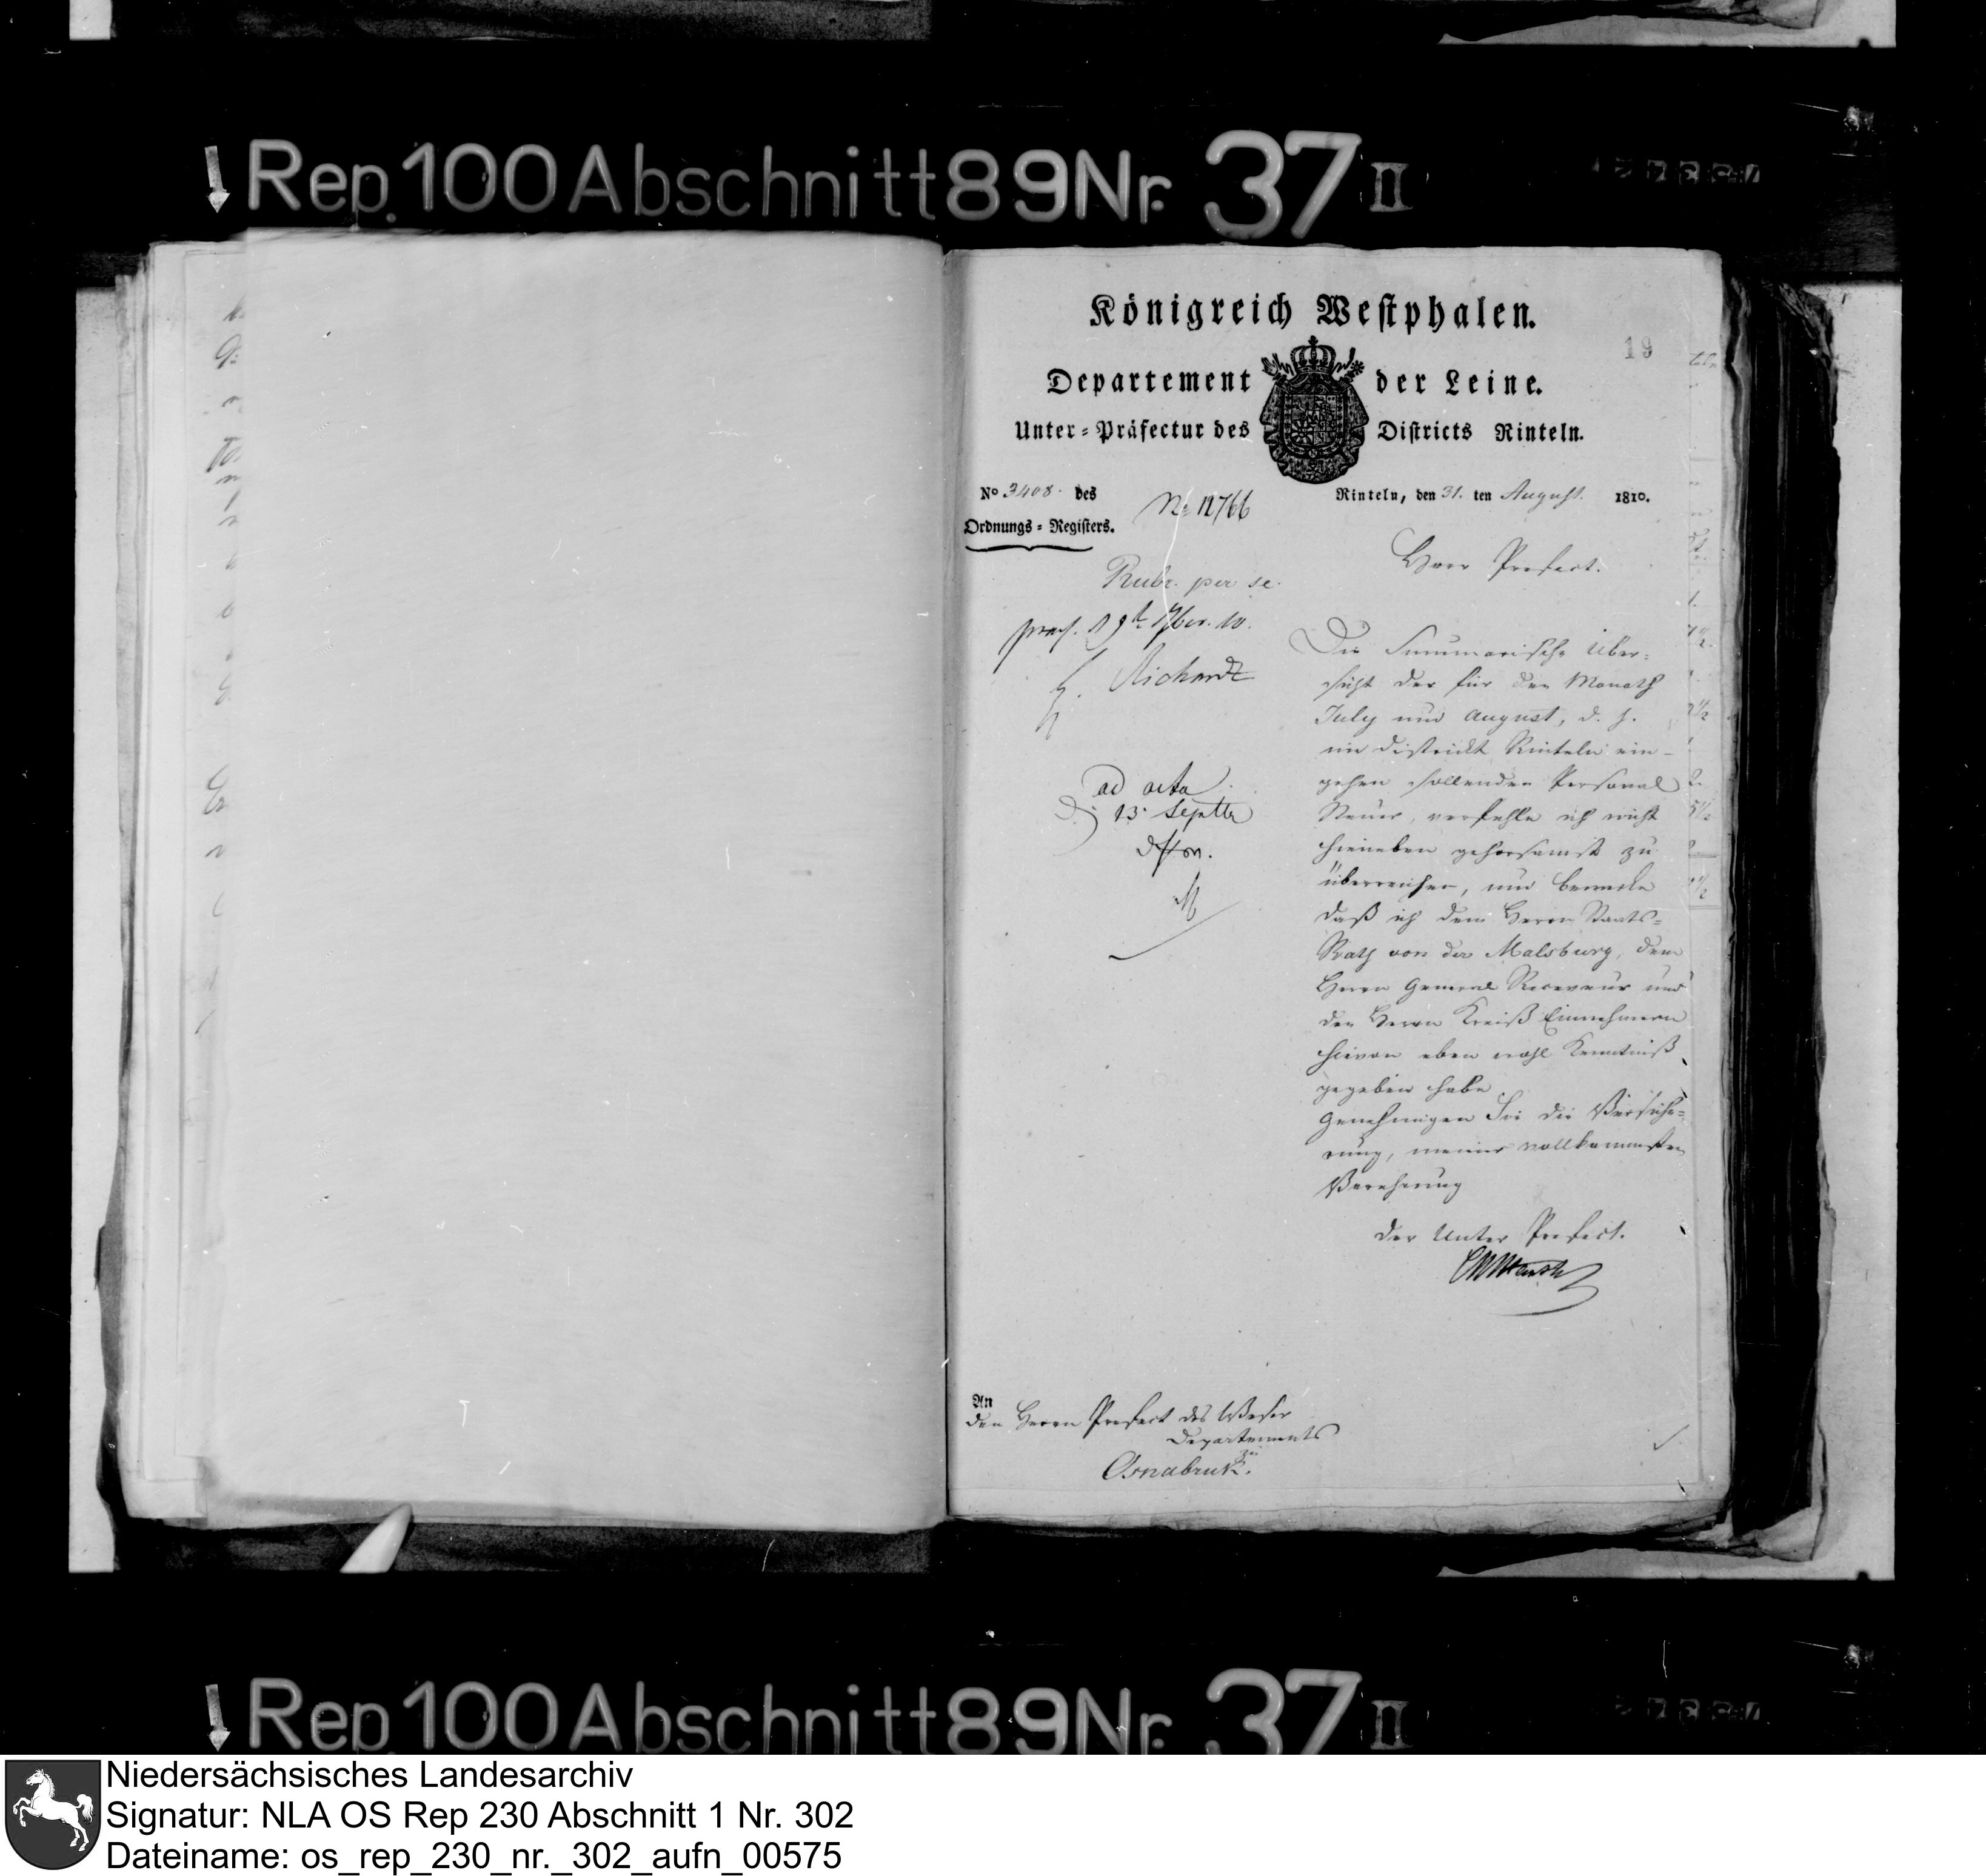 Rep. 100 Abschnitt 89 Nr. 37 II
Königreich Westphalen.
19
Departement der Leine.
Unter-Präfectur des Districts Rinteln.
No 3408. des
Ordnungs-Registers.
No 12766
Rinteln, den 31. ten August. 1810.
Herr Prefect.
Rubr. per se.
praes. 9br. 10.
Richardt
ad acta
d. 13 Septbr
Die Summarische Über-
sicht der für den Monath
July und August, d. J.
im District Rinteln ein-
gehen sollenden Personal
Steuer, verfehle ich nicht
hieneben gehorsamst zu
überreichen, und bemerke
daß ich dem Herrn Staats-
Rath von der Malsburg, dem
Herrn General Receveur und
den Herrn Kreiß Einnehmern
hievon eben wohl Kenntniß
gegeben habe
Genehmigen Sie die Versiche-
rung, meiner vollkommensten
Verehrung
Der Unter Prefect.
An
den Herrn Prefect des Weser
Departements
zu
Osnabruk.
Rep. 100 Abschnitt 89 Nr. 37 II
Niedersächsisches Landesarchiv
Signatur: NLA OS Rep 230 Abschnitt 1 Nr. 302
Dateiname: os_rep_230_nr._302_aufn_00575